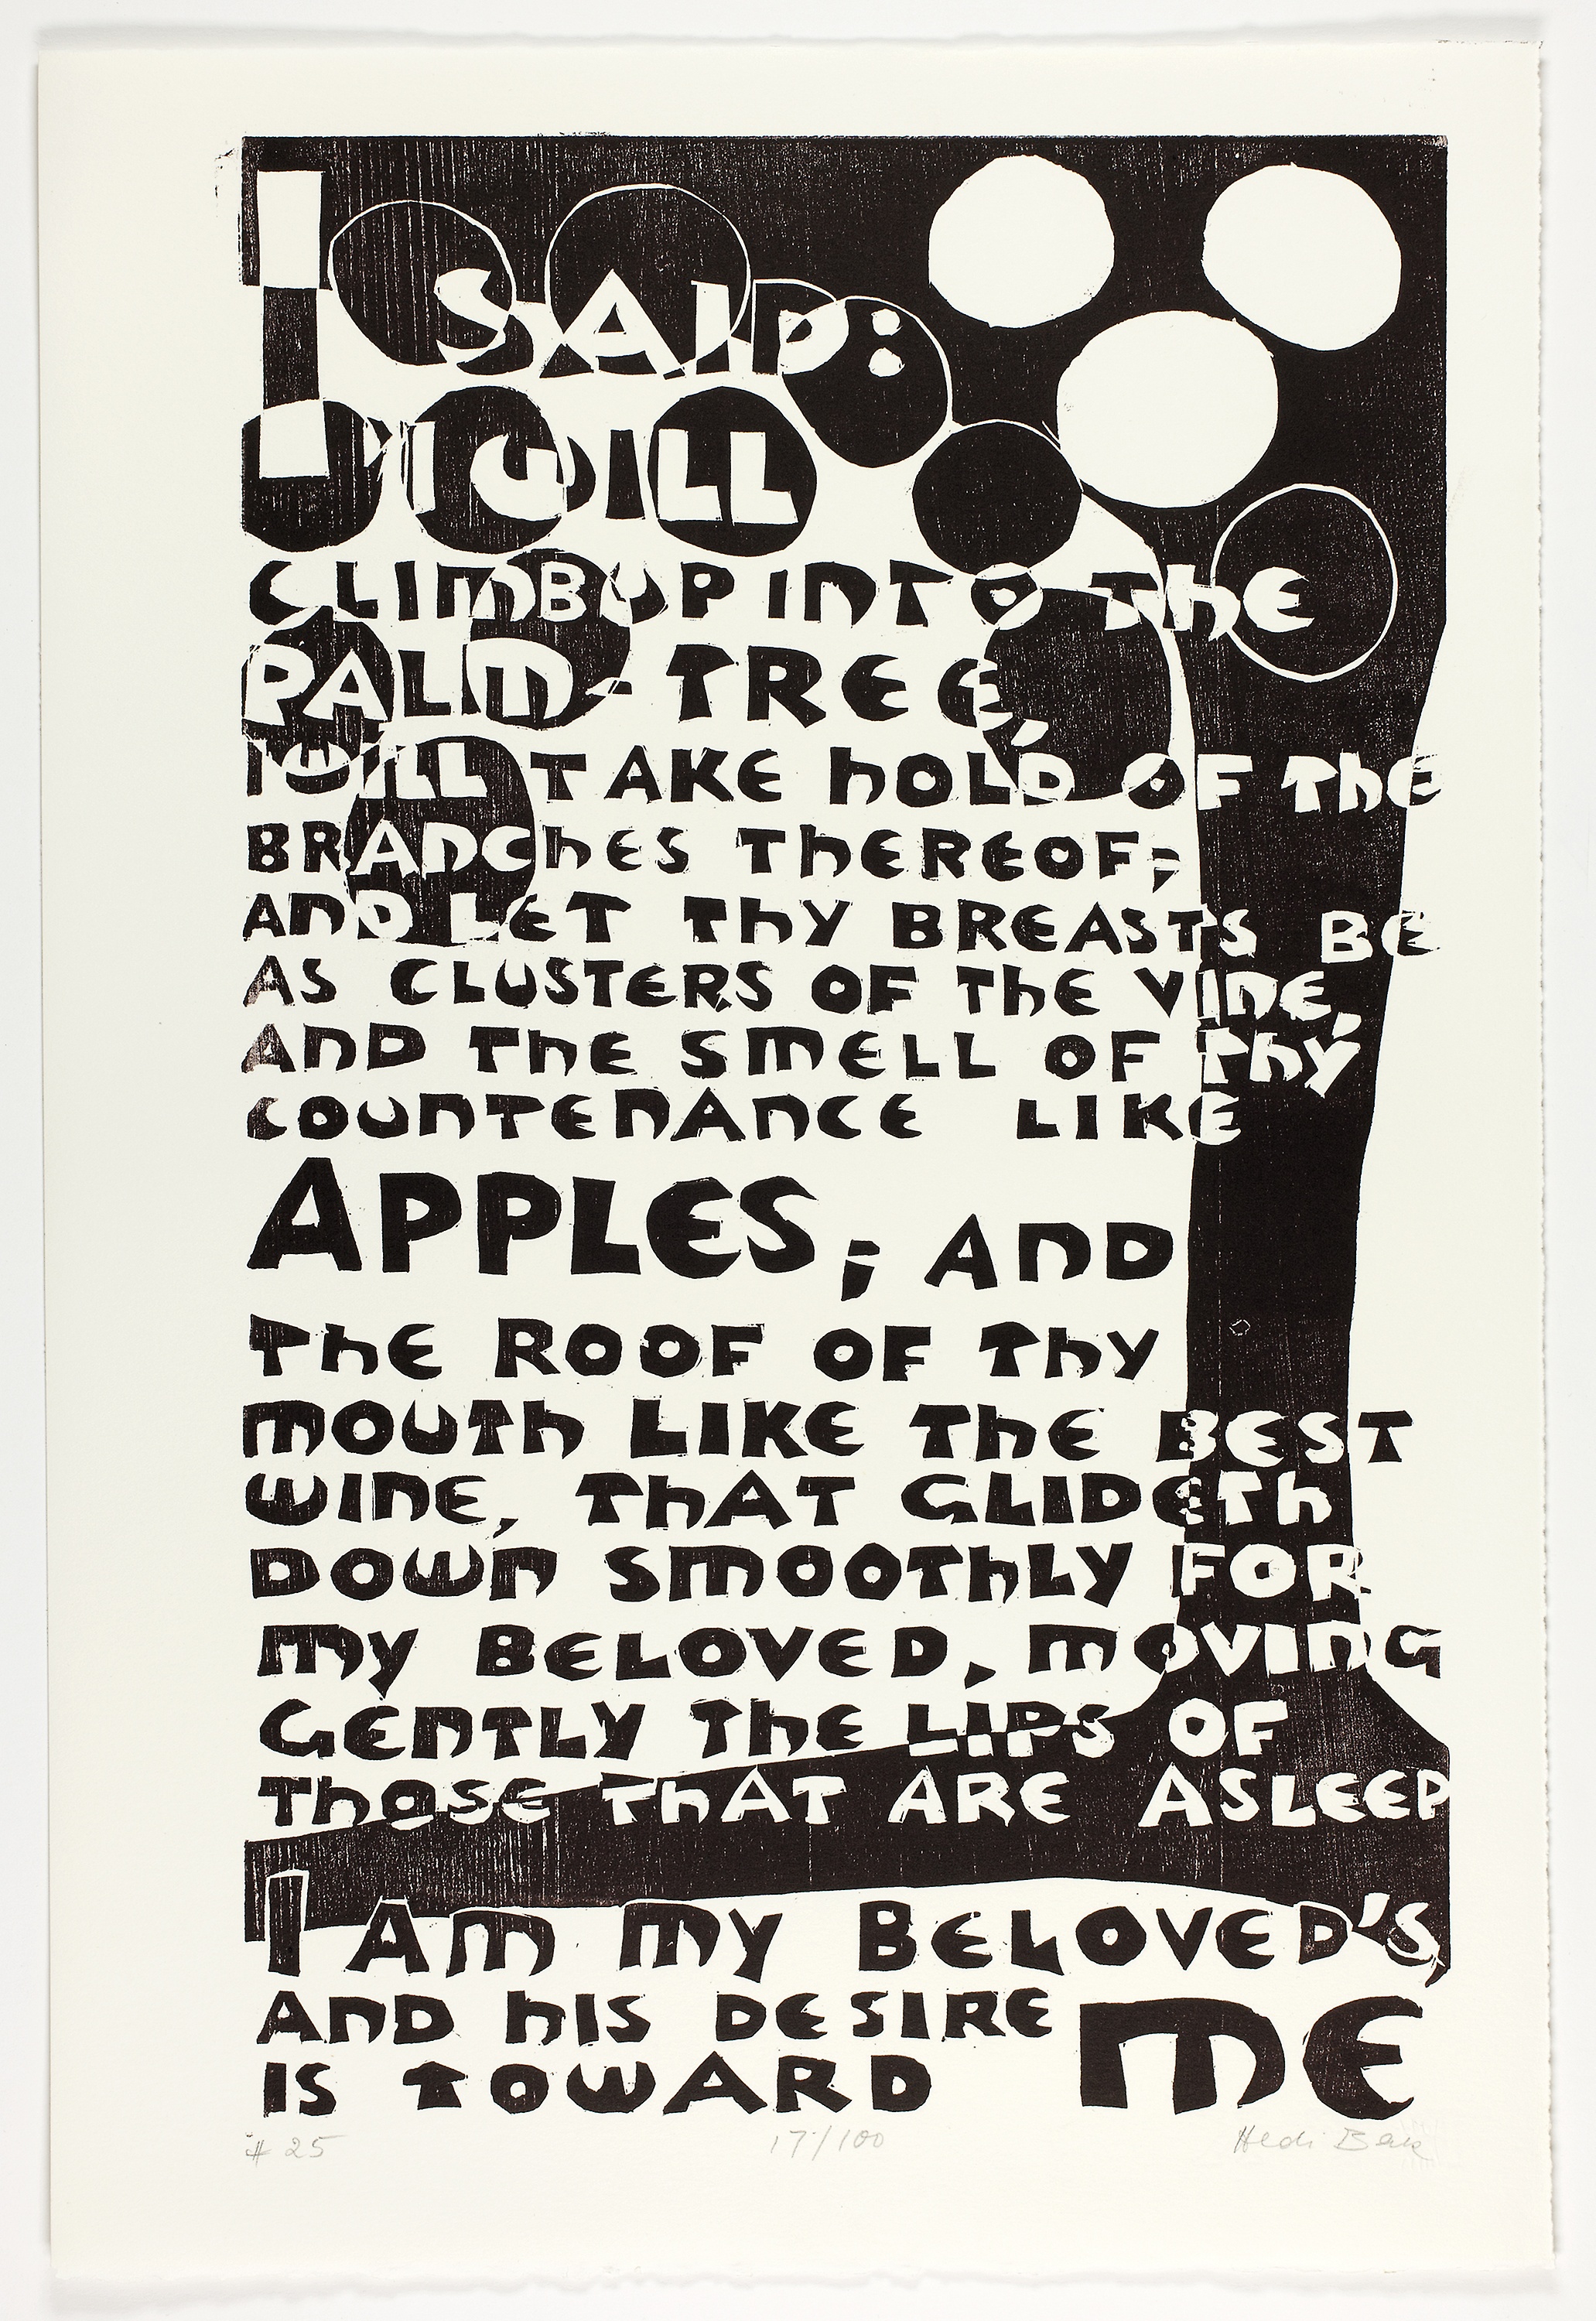 I SAID:
I WILL
CLIMB UP INTO THE
PALM-TREE,
I WILL TAKE HOLD OF THE
BRANCHES THEREOF;
AND LET THY BREASTS BE
AS CLUSTERS OF THE VINE,
AND THE SMELL OF THY
COUNTENANCE LIKE
APPLES; AND
THE ROOF OF THY
MOUTH LIKE THE BEST
WINE, THAT GLIDETH
DOWN SMOOTHLY FOR
MY BELOVED, MOVING
GENTLY THE LIPS OF
THOSE THAT ARE ASLEEP
I AM MY BELOVED'S,
AND HIS DESIRE
IS TOWARD ME
# 25 17/100 Hedi Bak